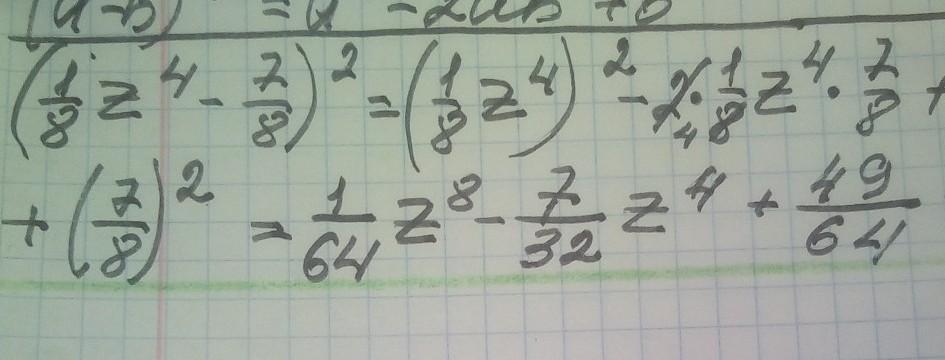 (a-b)² = a² - 2ab + b²
(1/8 z⁴ - 7/8)² = (1/8 z⁴)² - 2 · 1/8 4 z⁴ · 7/8 +
+ (7/8)² = 1/64 z⁸ - 7/32 z⁴ + 49/64